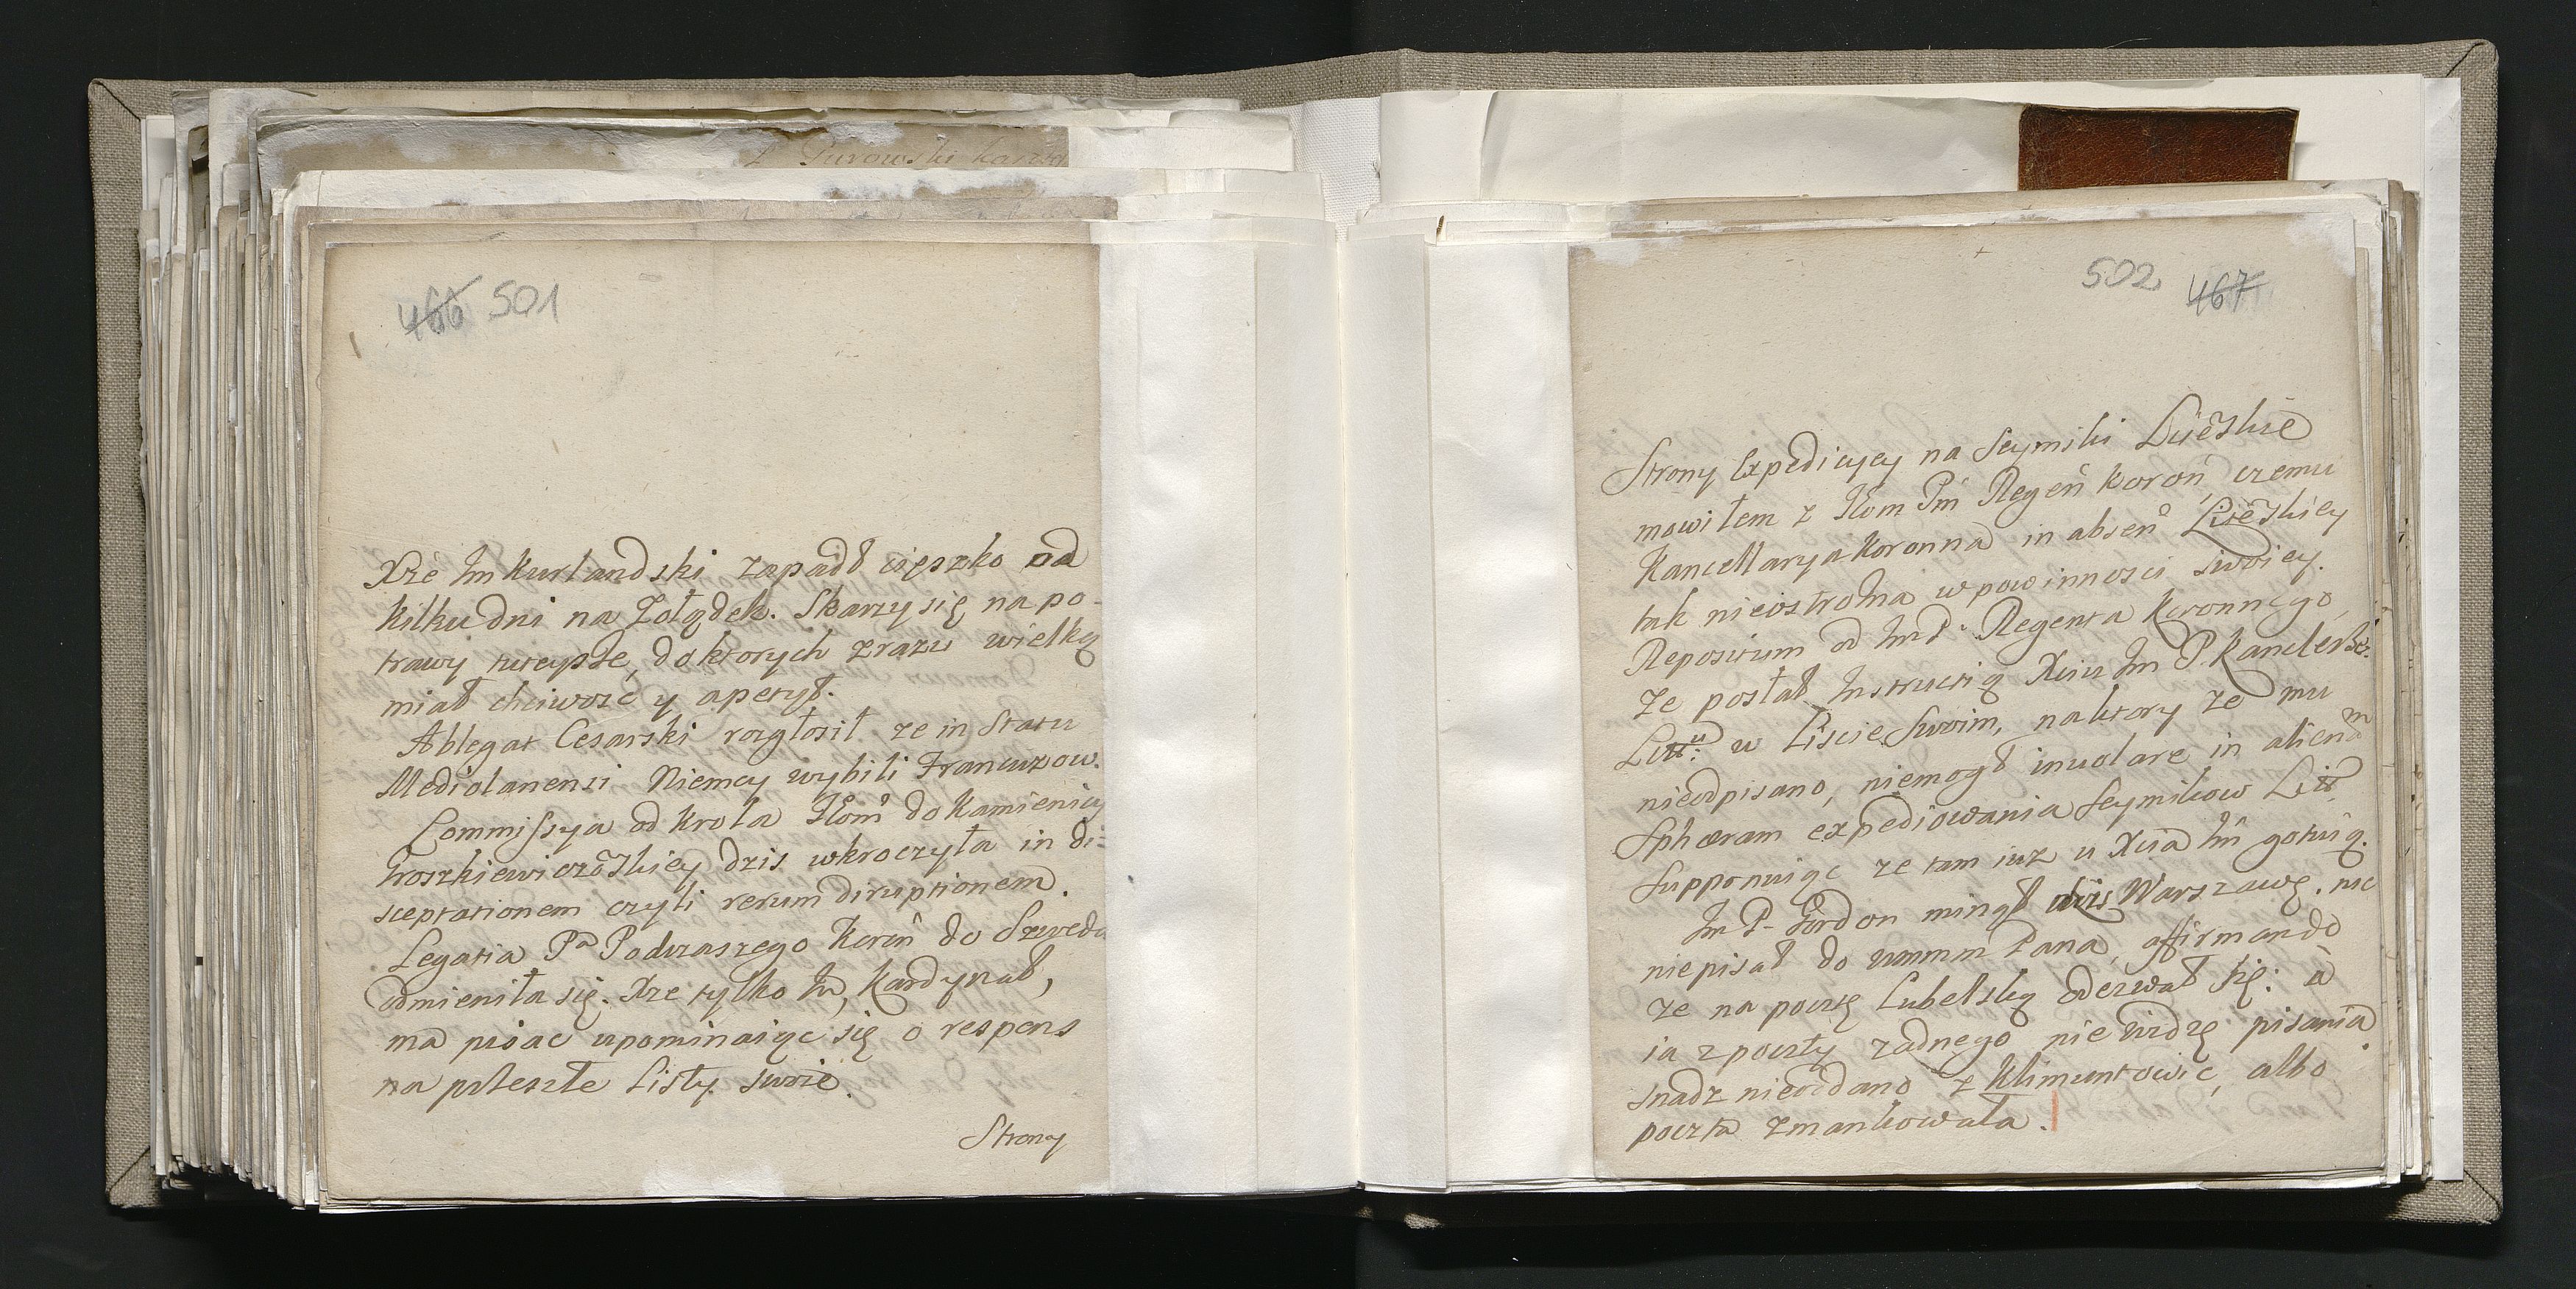 466 501
Xże Im kurlandski zapadł cięszko od
kilku dni na Zołądek. Skarzy się na po-
trawy tuteysze, do ktorych zrazu wielką
miał chciwosc y apetyt.
Ablegat Cesarski rozgłosił ze in Statu
Mediolanensi Niemcy wybili Francuzow.
Commissya od krola do Kamienicy
dzis wkroczyła in di-
sceptationem czyli rerum diruptionem.
Legatia Pa Podczaszego Koron do Szweda
odmieniła się. Xze tylko Im, Kardynał,
ma pisac upominaiąc się o respons
na przeszłe Listy swoie.
Strony
502 467
Strony Expedicyey na Seymiki
mowiłem z Pm Regen koron, czemu
Kancellarya Koronna in absen
tak nieostrożna w powinnosci swoiey.
Repositum od Im P. Regenta Koronnego,
ze posłał Instructią Xciu Im P. Kanclerz.
Litt: w Liscie swoim, na ktory ze mu
nieodpisano, niemogł inuolare in alienam
Sphæram expediowania Seymikow Litt
Supponuiąc ze tam iuz u Xcia Im gotuią.
Im P. Gordon minął dzis Warszawę. nic
niepisał do Pana, affirmando
ze na pocztę Lubelską oderwał się: a
ia z poczty zadnego nie widzę pisania
snadz nieoddano z Klimuntowic, albo
poczta zmankowała.